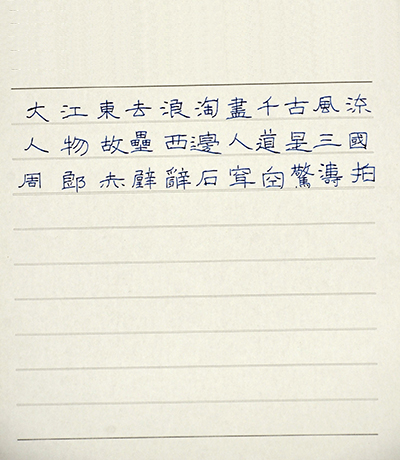 大江東去浪淘盡千古風流
人物故壘西邊人道是三國
周郎赤壁辭石穿空驚濤拍